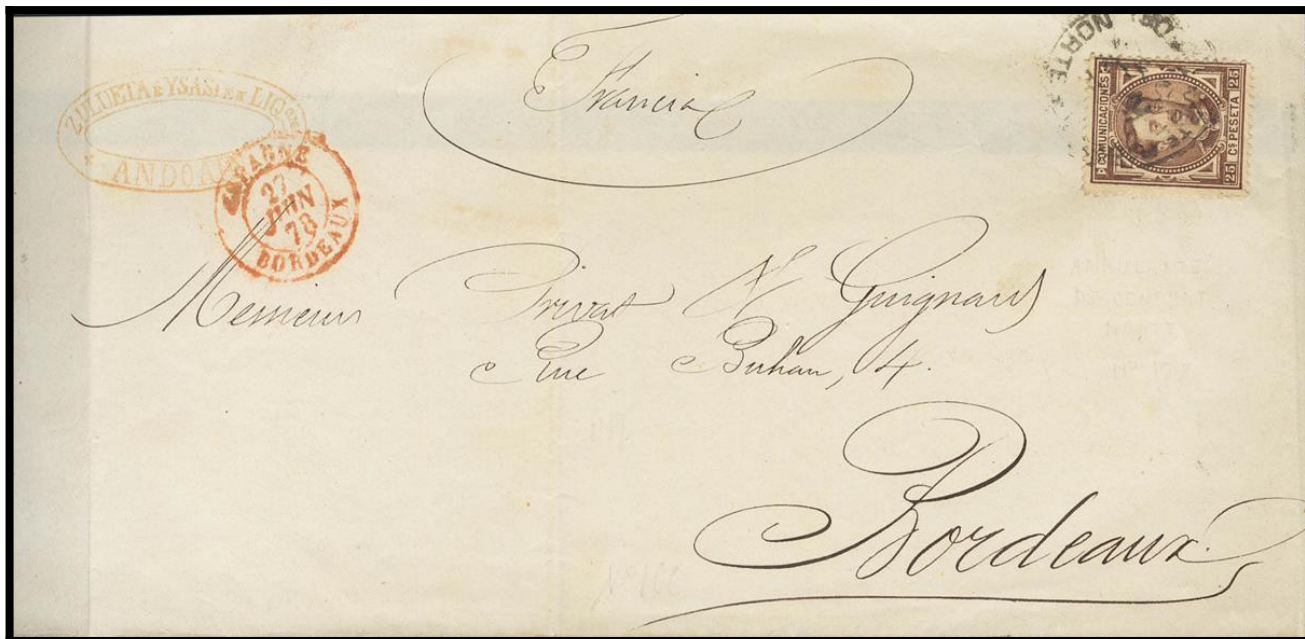 Francia
ZULUETA E YSASI EN LIQ
ANDOA
ESPAGNE
27
JUIN
78
BORDEAUX
NORTE
COMUNICACIONES
25 Cs PESETA 25
Messieurs Privat & Guignard
Rue Buhan, 4.
Bordeaux